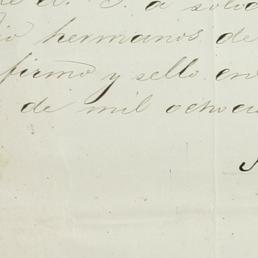 á solici
io hermanos de
firmo y sello en
de mil ochoci